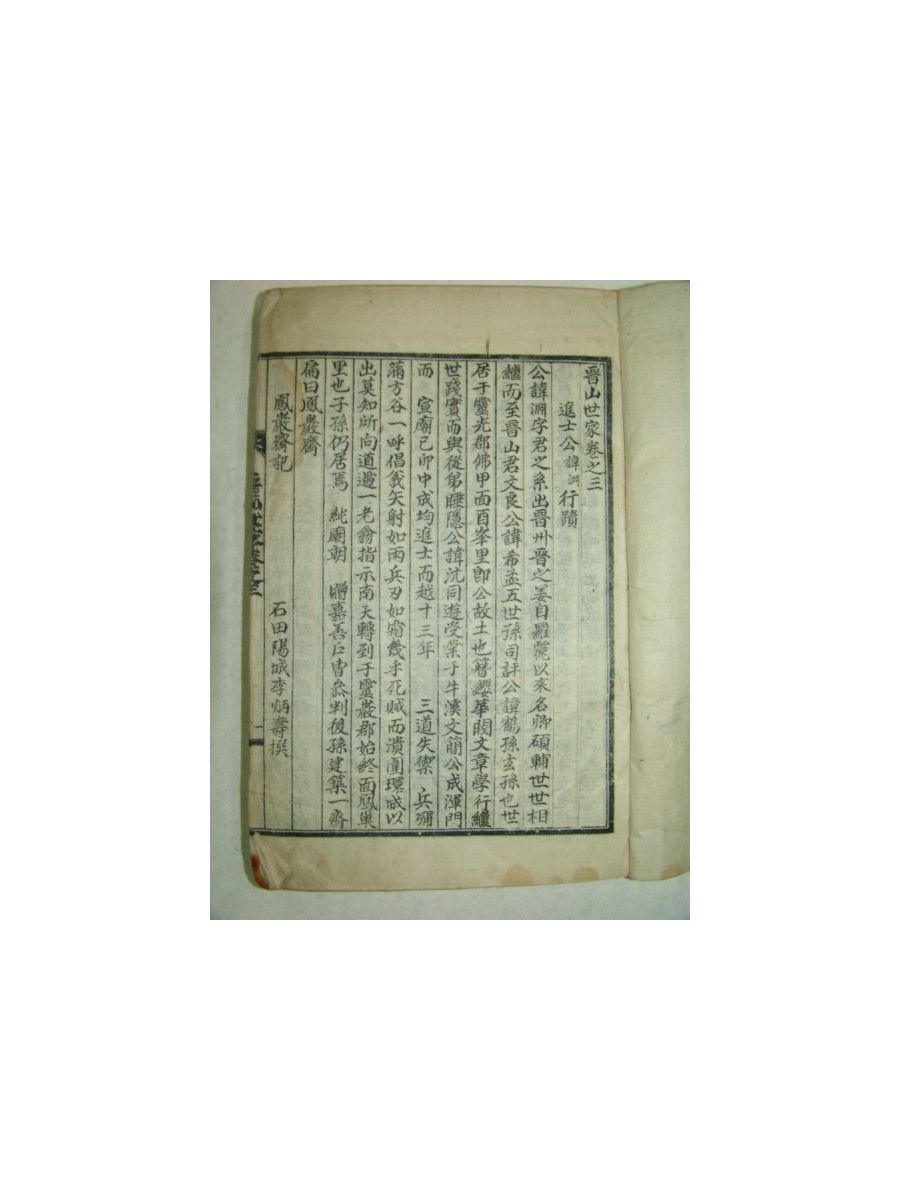 晋山世家卷之三
進士公諱淵行蹟
公諱淵字君之系出晋州晋之姜自羅麗以來名卿碩輔世世相
繼而至晋山君文良公諱希孟五世孫司評公諱鶴孫玄孫也世
居于靈光郡佛甲面酉峯里卽公故土也簪纓華閥文章學行繼
世踐實而與從弟睡隱公諱沆同遊受業于牛溪文簡公成渾門
而 宣廟己卯中成均進士而越十三年 三道失禦 兵彌
滿方谷一呼倡義矢射如雨兵刃如霜幾乎死賊而潰圍環城以
出莫知所向道遇一老翁指示南天轉到于靈巖郡始終面鳳巢
里也子孫仍居焉 純廟朝 贈嘉善戶曹叅判後孫建築一齋
扁曰鳳巖齋
鳳巖齋記 石田陽城李炳壽撰